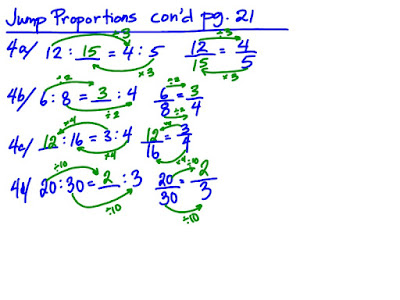 Jump Proportions con'd pg. 21
÷3
4a/ 12 : 15 = 4 : 5
×3
÷3
12/15 = 4/5
×3
÷2
4b/ 6 : 8 = 3 : 4
÷2
÷2
6/8 = 3/4
÷2
×4
4c/ 12 : 16 = 3 : 4
×4
×4
12/16 = 3/4
×4
÷10
4d/ 20 : 30 = 2 : 3
÷10
÷10
20/30 = 2/3
÷10